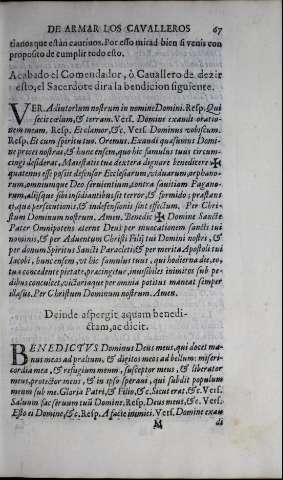 DE ARMAR LOS CAVALLEROS 67
tianos que están cautiuos. Por esso mirad bien si venis con
proposito de cumplir todo esto.
Acabado el Comendador, ò Cauallero de dezir
esto, el Sacerdote dira la bendicion siguiente.
VER. Adiutorium nostrum in nomine Domini. Resp. Qui
fecit cœlum, & terram. Vers. Domine exaudi oratio-
nem meam. Resp. Et clamor, &c. Vers. Dominus vobiscum.
Resp. Et cum spiritu tuo. Oremus. Exaudi quæsumus Domi-
ne preces nostras, & hunc ensem, quo hic famulus tuus circum-
cingi desiderat, Maiestatis tuæ dextera dignare benedicere ✠
quatenus esse possit defensor Ecclesiarum, viduarum, orphano-
rum, omniumque Deo seruientium, contra sæuitiam Pagano-
rum, alijsque sibi insidiantibus sit terror, & formido; præstans
ei, quæ persecutionis, & indefensionis sint effectum. Per Chri-
stum Dominum nostrum. Amen. Benedic ✠ Domine Sancte
Pater Omnipotens æterne Deus per inuocationem sancti tui
nominis, & per Aduentum Christi Filij tui Domini nostri, &
per donum Spiritus Sancti Paracleti & per merita Apostoli tui
Iacobi, hunc ensem, vt hic famulus tuus, qui hodierna die, eo,
tua concedente pietate, præcingitur, inuisibiles inimicos sub pe-
dibus conculcet, victoriaque per omnia potitus maneat semper
illæsus. Per Christum Dominum nostrum. Amen.
Deinde aspergit aquam benedi-
ctam, ac dicit.
BENEDICTVS Dominus Deus meus, qui docet ma-
nus meas ad prælium, & digitos meos ad bellum: miseri-
cordia mea, & refugium meum, susceptor meus, & liberator
meus, protector meus, & in ipso speraui, qui subdit populum
meum sub me. Gloria Patri, & Filio, &c. Sicut erat, &c. Vers.
Saluum fac seruum tuũ Domine. Resp. Deus meus, &c. Vers.
Esto ei Domine, &c. Resp. A facie inimici. Vers. Domine exau
M di